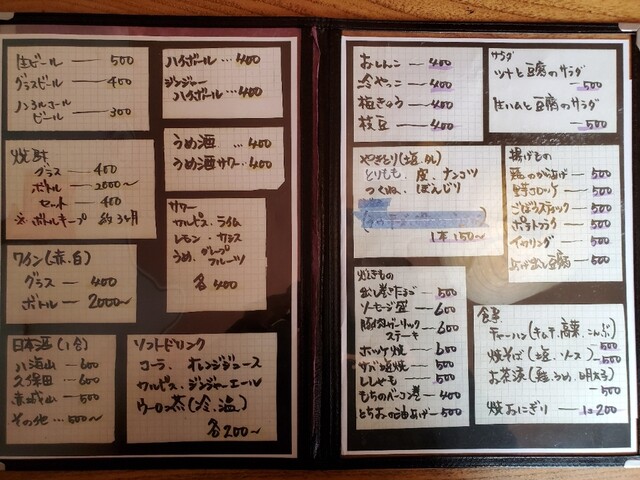 生ビール — 500
グラスビール — 400
ノンアルコール
ビール — 300
ハイボール … 400
ジンジャー
ハイボール … 400
うめ酒 … 400
うめ酒サワー … 400
焼酎
グラス — 400
ボトル — 2000〜
セット — 400
※ボトルキープ 約3ヶ月
サワー
カルピス・ライム
レモン・カシス
うめ・グレープ
フルーツ
各400
ワイン(赤・白)
グラス — 400
ボトル — 2000〜
日本酒(1合)
八海山 — 600
久保田 — 600
赤城山 — 500
その他 … 500〜
ソフトドリンク
コーラ、オレンジジュース
カルピス・ジンジャーエール
ウーロン茶(冷、温)
各200〜
おしんこ — 400
冷やっこ — 400
梅きゅう — 400
枝豆 — 400
サラダ
ツナと豆腐のサラダ
— 500
生ハムと豆腐のサラダ
— 500
やきとり(塩、タレ)
とりもも、皮、ナンコツ
つくね、ぼんじり
1本 150〜
揚げもの
鶏のから揚げ — 500
野菜コロッケ — 500
ごぼうスティック — 500
ポテトフライ — 500
イカリング — 500
あげ出し豆腐 — 500
焼きもの
出し巻きたまご — 500
ソーセージ盛 — 600
豚肉ガーリック
ステーキ — 600
ホッケ焼 — 600
サバ塩焼 — 500
ししゃも — 500
もちのベーコン巻 — 400
とちおの油あげ — 500
食事
チャーハン(キムチ、高菜、こんぶ)
— 500
焼そば(塩、ソース) — 500
お茶漬(鮭、うめ、明太子)
— 500
焼おにぎり — 1コ 200